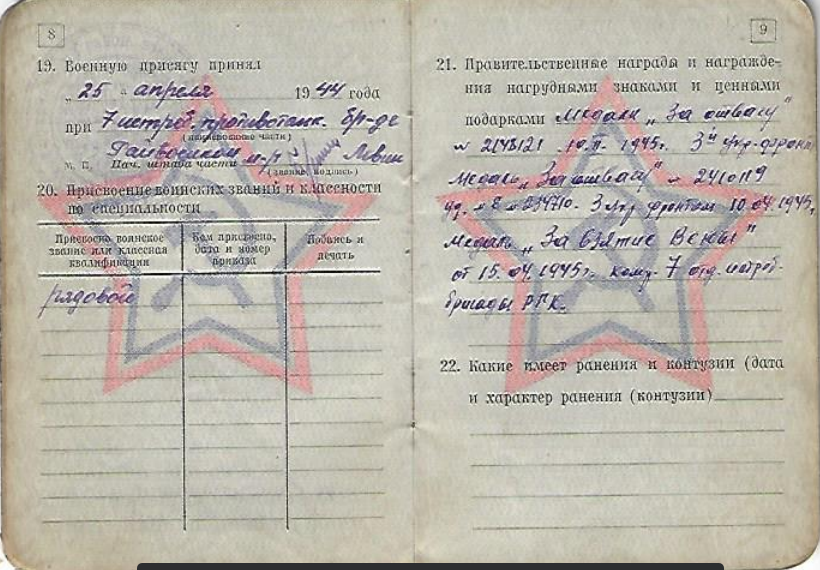 8
19. Военную присягу принял
„ 25 „ апреля 1944 года
при 7 истреб. противотанк. бр-де
(наименование части)
м. п. Нач. штаба части м-р Левин
(звание, подпись)
20. Присвоение воинских званий и классности
по специальности
Присвоено воинское звание или классная квалификация
Кем присвоено, дата и номер приказа
Подпись и печать
рядовой
9
21. Правительственные награды и награжде-
ния нагрудными знаками и ценными
подарками Медаль „За отвагу"
10. 1945г. 3й Укр. фронт
Медаль „За отвагу" 
3 укр. фронтом 10.04.1945г.
Медаль „За взятие Вены"
от 15.04.1945г. 7 отд. истреб.
бригады РГК.
22. Какие имеет ранения и контузии (дата
и характер ранения (контузии)